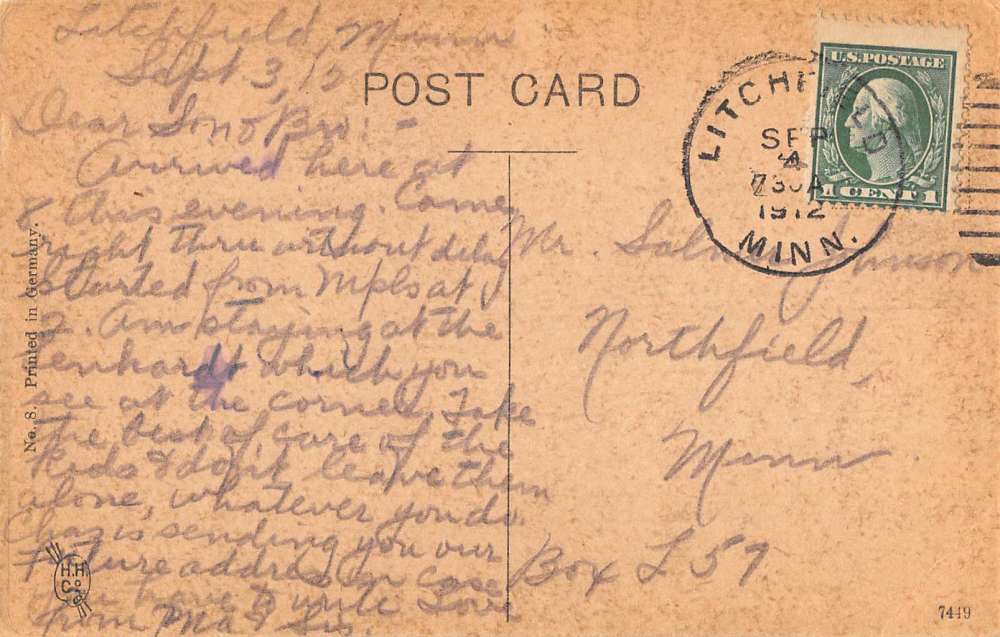 Litchfield, Minn
Sept 3, 12
Dear Son & Bro: -
Arrived here at
8 this evening. Came
right thru without delay
started from Mpls at
2. Am staying at the
Lenhardt which you
see at the corner. Take
the best of care of the
kids & don't leave them
alone, whatever you do.
Chas is sending you our
future address in case
you have to write Love
from Ma & Sis.
POST CARD
U.S. POSTAGE
1 CENT 1
LITCHFIELD
SEP
4
730A
1912
MINN.
Mr. Johnson
Northfield,
Minn.
Box L 57
No. 8. Printed in Germany.
H.H.
Co
7449